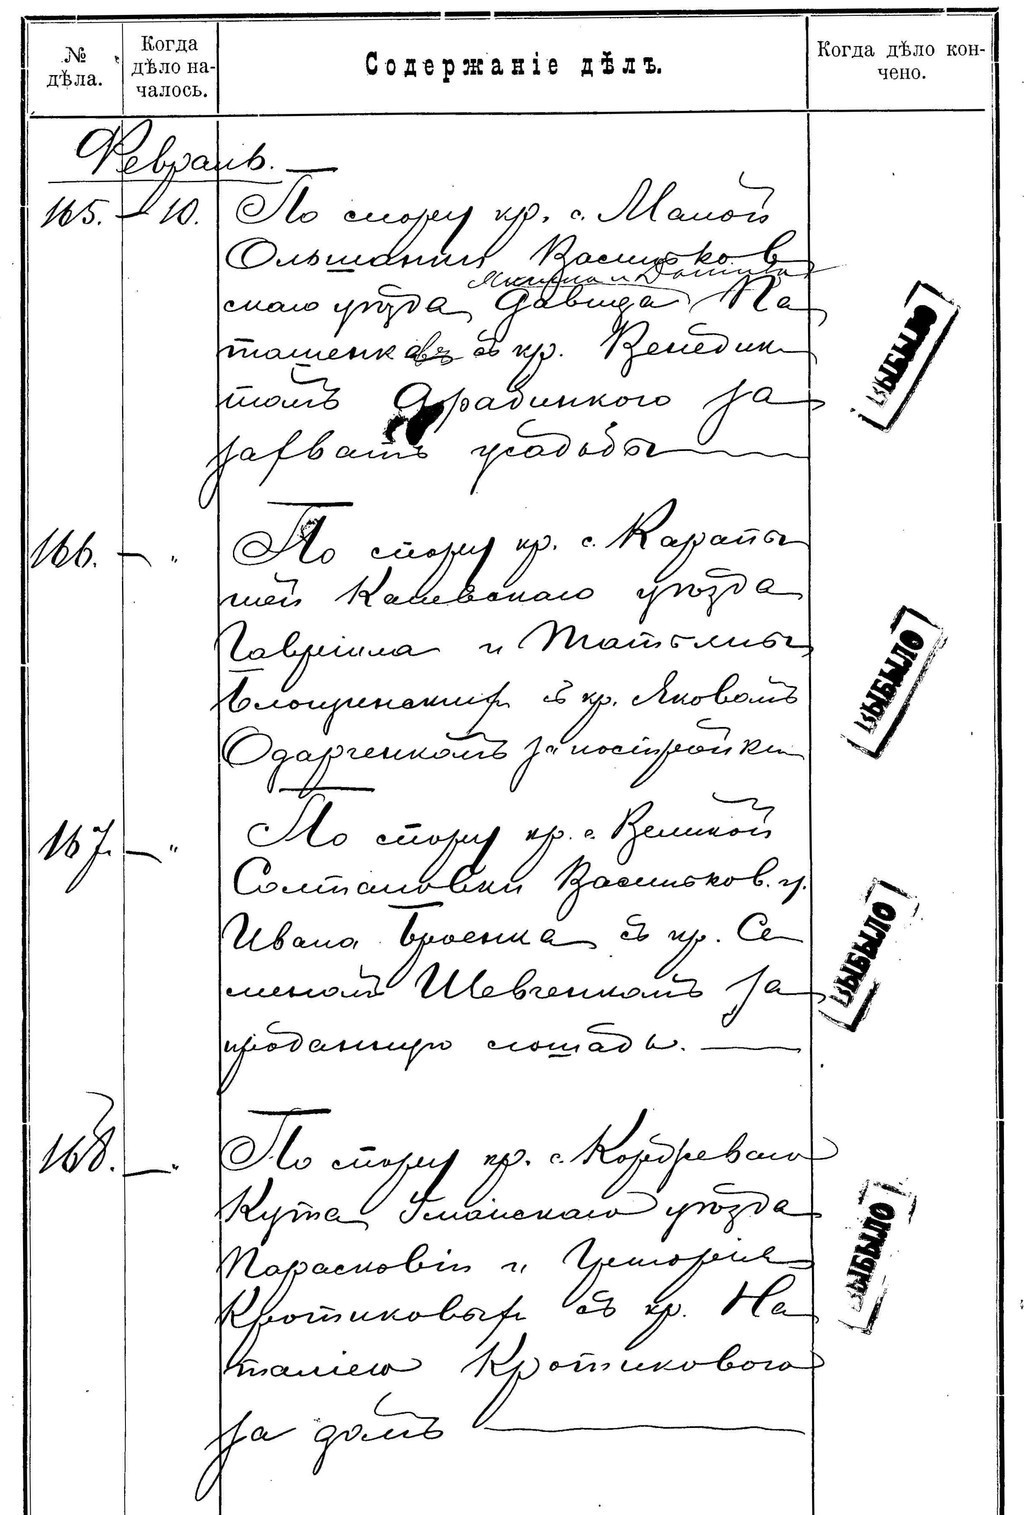 № дѣла.
Когда дѣло началось.
Содержаніе дѣлъ.
Когда дѣло кончено.
Февраль.
165. — 10. По спору кр. с. Малой
Ольшанки Васильков
Якима и
скаго уѣзда Давида Па
ташенковъ съ кр. Венедик
томъ за
захватъ усадьбы
ВЫБЫЛО
166. — „ По спору кр. с. Карапы
шей Каневскаго уѣзда
Гавріила и Татьяны
Блощинскихъ съ кр. Яковомъ
Одарченкомъ за постройки
ВЫБЫЛО
167. — „ По спору кр. с. Великой
Солтановки Васильков. у.
Ивана съ кр. Се
меномъ Шевченкомъ за
проданную лошадь.
ВЫБЫЛО
168. — „ По спору кр. с.
Кута Уманскаго уѣзда
Парасковіи и Григорія
Кротиковыхъ съ кр. На
таліею Кротиковою
за домъ
ВЫБЫЛО